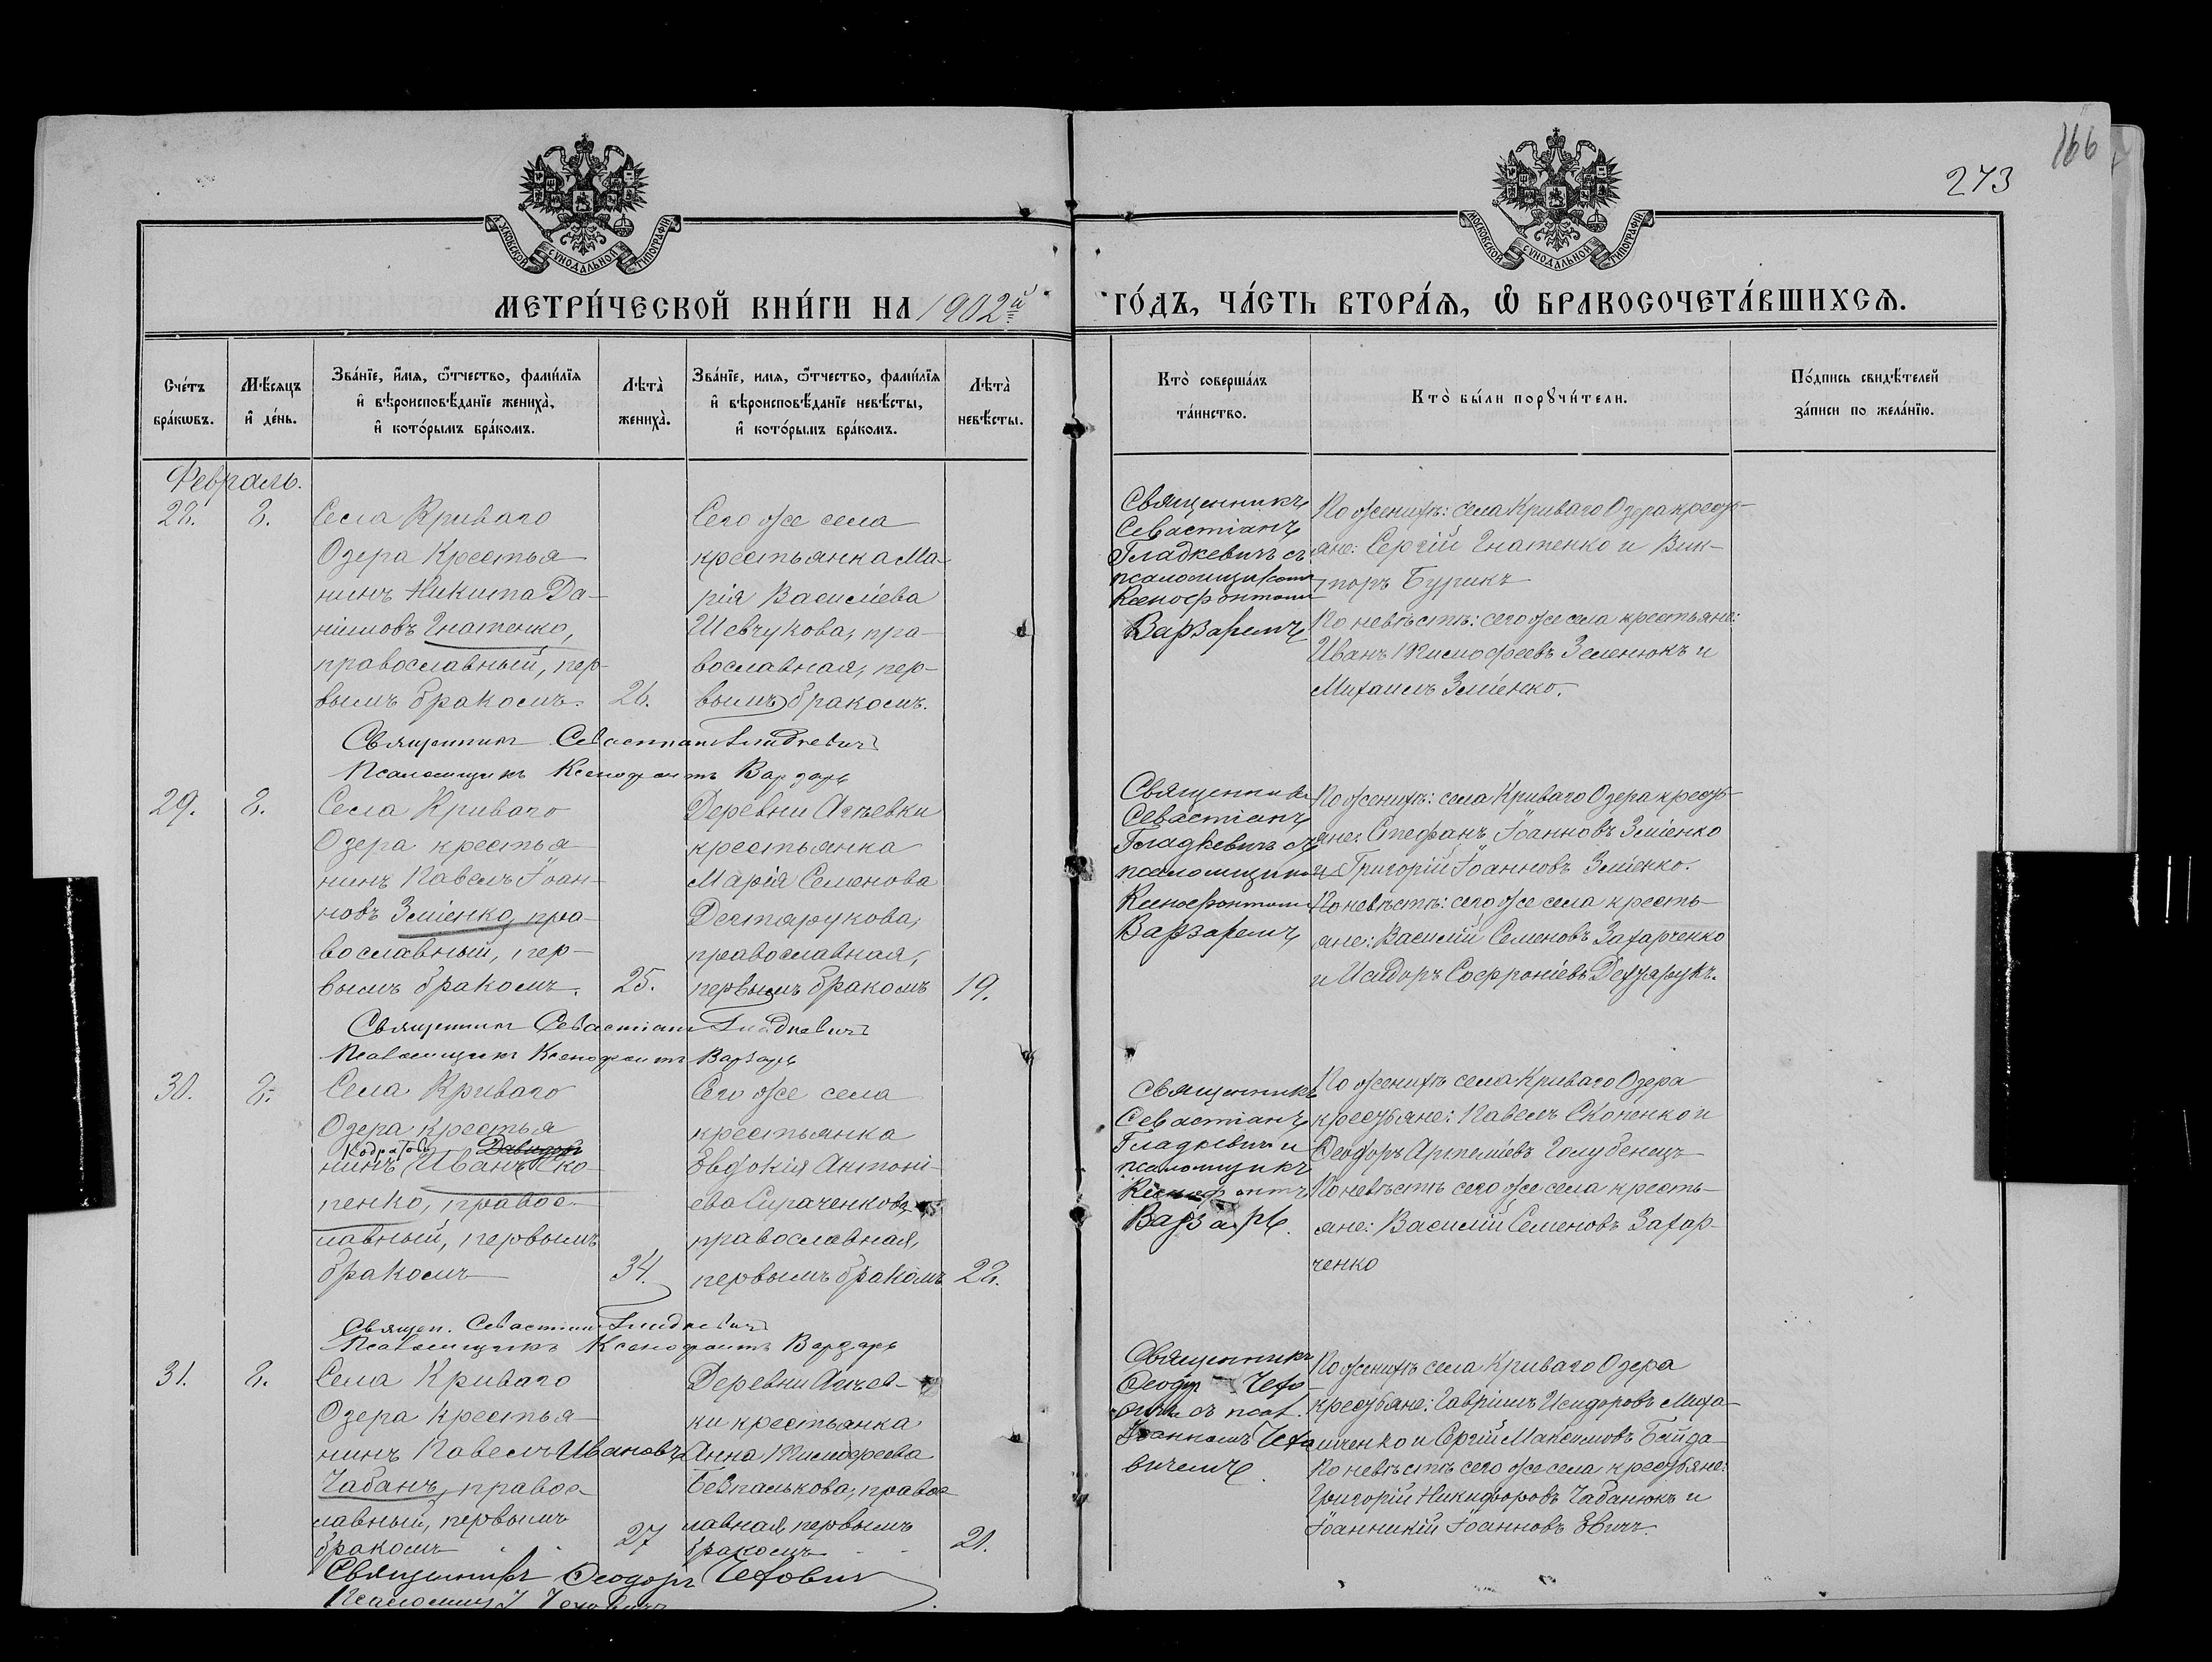 166
273
МОСКОВСКОЙ СѴНОДАЛЬНОЙ ТИПОГРАФІИ
МОСКОВСКОЙ СѴНОДАЛЬНОЙ ТИПОГРАФІИ
МЕТРИ́ЧЕСКОЙ КНИ́ГИ НА 1902й
ГО́ДЪ, ЧА́СТЬ ВТОРА́Ѧ, Ѡ БРАКОСОЧЕТА́ВШИХСѦ.
Сче́тъ бра́кѡвъ.
Мѣ́сѧцъ и҆ де́нь.
Зва́нїе, и҆́мѧ, ѻ҆́тчество, фами́лїѧ и҆ вѣроисповѣ́данїе жениха̀, и҆ кото́рымъ бра́комъ.
Лѣта̀ жениха̀.
Зва́нїе, имѧ, ѻ҆́тчество, фами́лїѧ и҆ вѣроисповѣ́данїе невѣ́сты, и҆ кото́рымъ бра́комъ.
Лѣта̀ невѣ́сты.
Кто̀ соверша́лъ та́инство.
Кто̀ бы́ли порꙋчи́тели.
По́дпись свидѣ́телей за́писи по жела́нїю.
Февраль.
28. 8.
Села Криваго
Озера Крестья
нинъ Никита Да-
нииловъ Гнатенко,
православный, пер-
вымъ бракомъ. 26.
Сего же села
крестьянка Ма-
рія Василіева
Шевчукова, пра-
вославная, пер-
вымъ бракомъ.
Священникъ
Севастіанъ
Гладкевичъ съ
псаломщикомъ
Ксенофонтомъ
Варзаремъ
По женихѣ: села Криваго Озера кресть-
яне: Сергій Гнатенко и Вик-
торъ Бурикъ
По невѣстѣ: сего же села крестьяне:
Иванъ Тимофеевъ Земенюкъ и
Михаилъ Зміенко.
Священникъ Севастіанъ Гладкевичъ
Псаломщикъ Ксенофонтъ Варзарь
29. 8.
Села Криваго
Озера крестья-
нинъ Павелъ Іоан-
новъ Зміенко, пра-
вославный, пер-
вымъ бракомъ. 25.
Деревни Агѣевки
крестьянка
Марія Семенова
Дегтярукова,
православная,
первымъ бракомъ 19.
Священникъ
Севастіанъ
Гладкевичъ съ
псаломщикомъ
Ксенофонтомъ
Варзаремъ
По женихѣ: села Криваго Озера кресть-
яне: Стефанъ Іоанновъ Зміенко
и Григорій Іоанновъ Зміенко.
По невѣстѣ: сего же села кресть-
яне: Василій Семеновъ Захарченко
и Исидоръ Софроніевъ Дегтярукъ.
Священникъ Севастіанъ Гладкевичъ
Псаломщикъ Ксенофонтъ Варзарь
30. 8.
Села Криваго
Озера крестья
Кодратовъ Давидовъ
нинъ Иванъ Ско-
пенко, правос-
лавный, первымъ
бракомъ 34.
Сего же села
крестьянка
Евдокія Антоні-
ева
православная,
первымъ бракомъ 22.
Священникъ
Севастіанъ
Гладкевичъ и
псаломщикъ
Ксенофонтъ
Варзарь.
По женихѣ села Криваго Озера
крестьяне: Павелъ Скопенко и
Ѳеодоръ Артеміевъ Голубенецъ
По невѣстѣ сего же села кресть-
яне: Василій Семеновъ Захар-
ченко
Священ. Севастіанъ Гладкевичъ
Псаломщикъ Ксенофонтъ Варзарь
31. 8.
Села Криваго
Озера крестья-
нинъ Павелъ Ивановъ
Чабанъ, правос-
лавный, первымъ
бракомъ 27
Деревни Агѣев-
ки крестьянка
Анна Тимофеева
Безпалькова, правос
лавная первымъ
бракомъ 21.
Священникъ
Ѳеодоръ Чехо-
вичъ съ псал.
Іоанномъ Чехо
вичемъ.
По женихѣ села Криваго Озера
крестьяне: Гавріилъ Исидоровъ Миха-
йличенко и Сергій Максимовъ Байда
По невѣстѣ сего же села крестьяне:
Григорій Никифоровъ Чабанюкъ и
Іоанникій Іоанновъ
Священникъ Ѳеодоръ Чеховичъ
Псаломщ. І. Чеховичъ